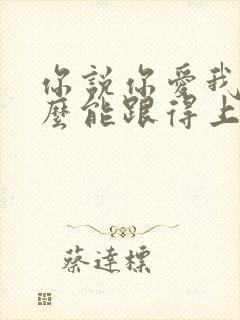 你說你愛我
麼能跟得上
蔡達標